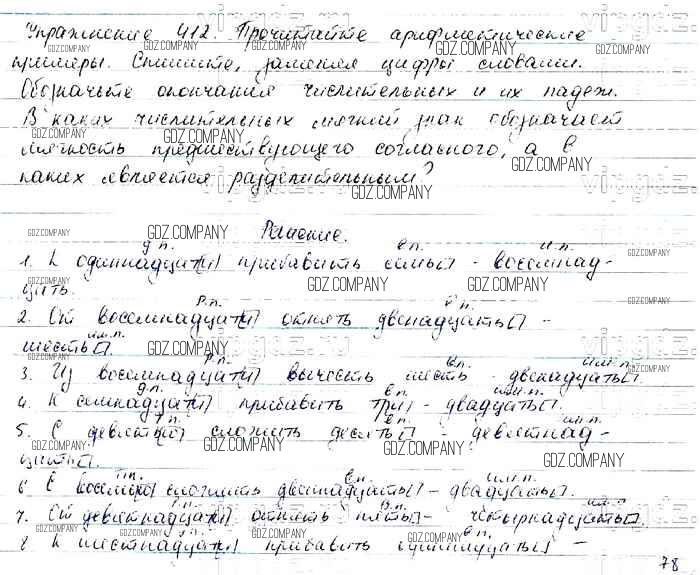 Упражнение 412. Прочитайте арифметические
примеры. Спишите, заменяя цифры словами.
Обозначьте окончания числительных и их падеж.
В каких числительных мягкий знак обозначает
мягкость предшествующего согласного, а в
каких является разделительным?
Решение.
д.п. в.п. и.п.
1. К одиннадцати прибавить семь - восемнад-
цать.
Р.п. в.п.
2. От восемнадцати отнять двенадцать -
и.п.
шесть.
Р.п. в.п. и.п.
3. Из восемнадцати вычесть шесть - двенадцать.
д.п. в.п. и.п.
4. К семнадцати прибавить три - двадцать.
в.п. и.п.
5. С сложить десять - девятнад-
цать.
т.п. в.п. и.п.
6 С сложить двенадцать - двадцать.
в.п. и.п.
7. От девятнадцати отнять пять - четырнадцать.
в.п.
8 К шестнадцати прибавить одиннадцать -
78
GDZ.COMPANY